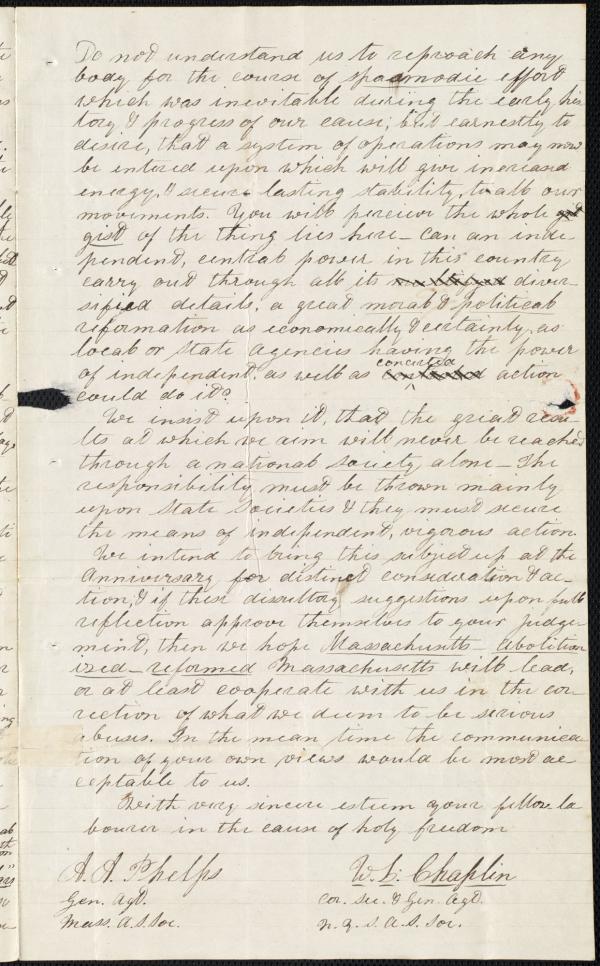 Do not understand us to reproach any
body for the course of spasmodic effort
which was inevitable during the early his
tory & progress of our cause, but earnestly to
desire, that a system of operations may now
be entered upon which will give increased
energy, & secure lasting stability, to all our
movements. You will perceive the whole
gist of the thing lies here – Can an inde-
pendent, central power in this country
carry out through all its diver-
sified details, a great moral & political
reformation as economically & certainly, as
local or State agencies having the power
of independent, as well as concerted action
could do it?
We insist upon it, that the great resu-
lts at which we aim will never be reached
through a national Society, alone – The
responsibility must be thrown mainly
upon State Societies & they must secure
the means of independent, vigorous action.
We intend to bring this subject up at the
Anniversary for distinct consideration & ac-
tion, & if these desultory suggestions upon full
reflection approve themselves to your judge-
ment, then we hope Massachusetts – abolition
ized – reformed Massachusetts will lead,
or at least cooperate with us in the cor-
rection of what we deem to be serious
abuses. In the mean time the communica
tion of your own views would be most ac
ceptable to us.
With very sincere esteem your fellow la
bourer in the cause of holy freedom
A. A. Phelps W. L. Chaplin
Gen. Agt. Cor. Sec. & Gen. Agt.
Mass. A. S. Soc. N. Y. S. A. S. Soc.